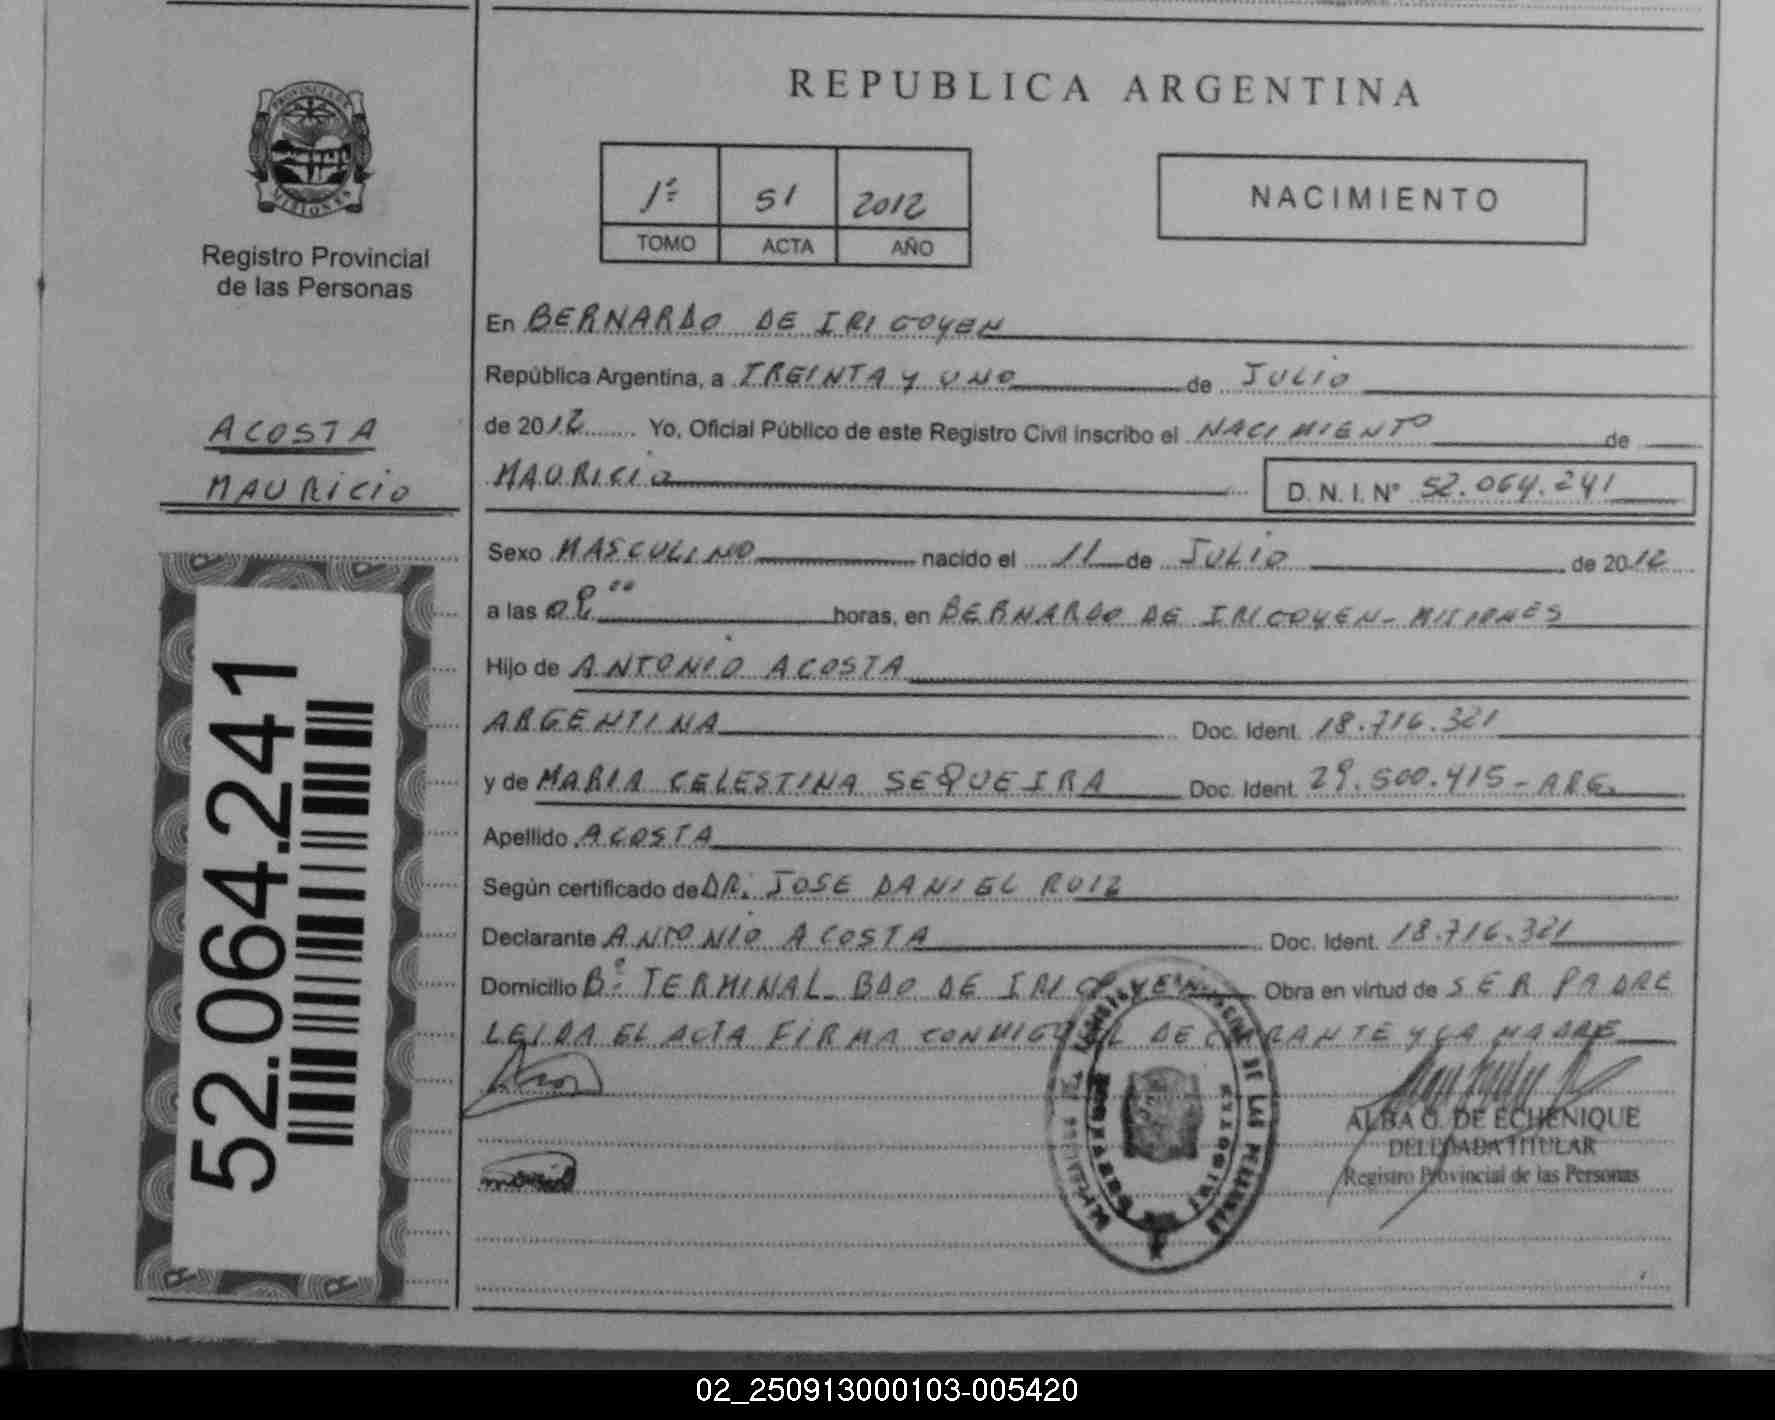 REPUBLICA ARGENTINA
PROVINCIA DE MISIONES
Registro Provincial
de las Personas
1º 51 2012
TOMO ACTA AÑO
NACIMIENTO
ACOSTA
MAURICIO
52.064.241
En BERNARDO DE IRIGOYEN
República Argentina, a TREINTA Y UNO de JULIO
de 2012 Yo, Oficial Público de este Registro Civil inscribo el NACIMIENTO de
MAURICIO D. N. I. Nº 52.064.241
Sexo MASCULINO nacido el 11 de JULIO de 2012
a las horas, en BERNARDO DE IRIGOYEN - MISIONES
Hijo de ANTONIO ACOSTA
ARGENTINA Doc. Ident. 18.716.321
y de MARIA CELESTINA SEQUEIRA Doc. Ident. 29.500.415 - ARG.
Apellido ACOSTA
Según certificado de DR. JOSE DANIEL RUIZ
Declarante ANTONIO ACOSTA Doc. Ident. 18.716.321
Domicilio Bº TERMINAL - BDO DE IRIGOYEN Obra en virtud de SER PADRE
LEIDA EL ACTA FIRMA CONMIGO EL DECLARANTE Y LA MADRE
ALBA O. DE ECHENIQUE
DELEGADA TITULAR
Registro Provincial de las Personas
02_250913000103-005420